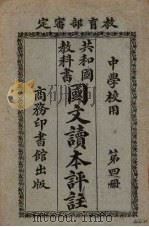 教育部審定
中學校用　第四冊
共和國教科書
國文讀本評註
商務印書館出版